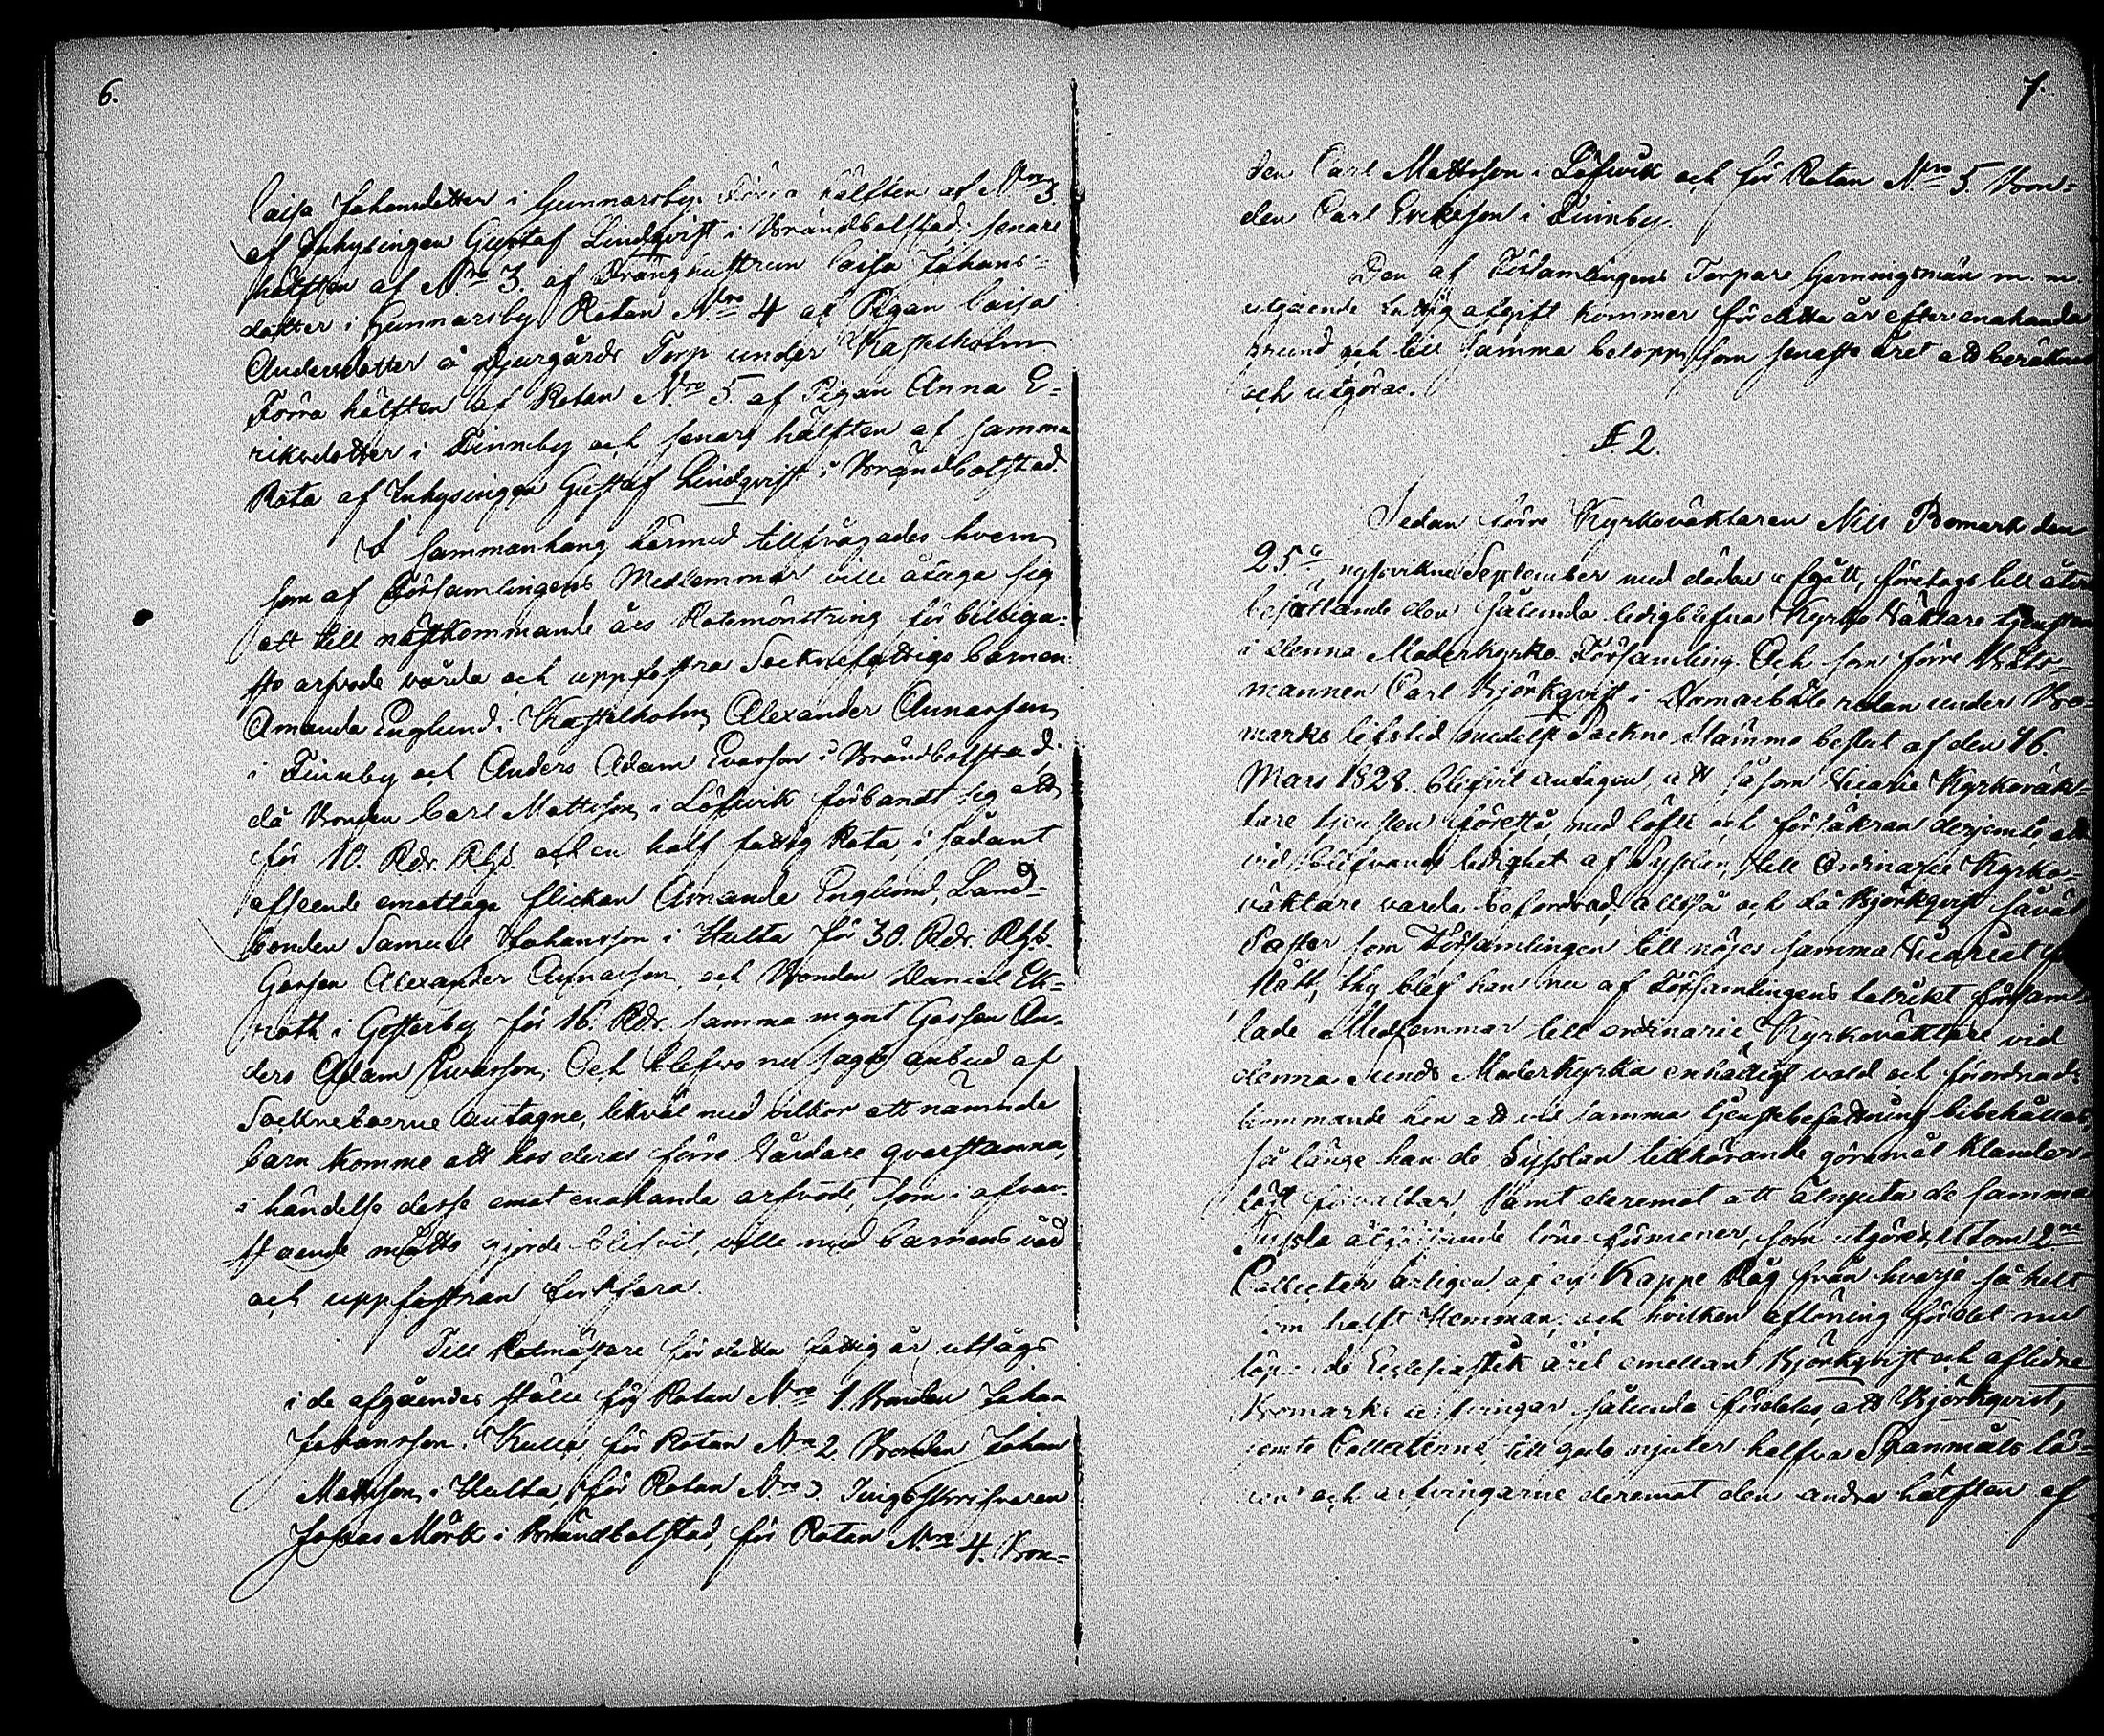 6.
Caisa Johansdotter i Gunnarsby. Förra hälften af N:ro 3.
af Inhysingen Gustaf Lindqvist i Brändbolstad, senare
hälften af N:ro 3. af Dränghustrun Caisa Johans-
dotter i Gunnarsby Rotan N:ro 4 af Pigan Caisa
Andersdotter å Djurgårds Torp under Kastelholm
Förra hälften af Rotan N:ro 5 af Pigan Anna E-
riksdotter i Finnby och senare hälften af samma
Rota af Inhysingen Gustaf Lindqvist i Brändbolstad.
I sammanhang härmed tillfrågades hvem
som af Församlingens Medlemmar ville åtaga sig
att till nästkommande års Rotemönstring för billiga-
ste arfvode vårda och uppfostra Socknefattige barnen
Amanda Englund i Kastelholm, Alexander Annarsson
i Finnby och Anders Adam Evarson i Brändbolstad,
då Bonden Carl Mattsson i Löfvik förbandt sig att
för 10. Rdr. Rgs. och en half fattig Rota, i sådant
afseende emottaga flickan Amanda Englund, Land-
bonden Samuel Johansson i Hulta för 30. Rdr. Rgs.
Gossen Alexander Annarsson, och Bonden Daniel Ek-
roth i Gesterby för 16. Rdr. samma mynt Gossen An-
ders Adam Evarsson; Och blefvo nu sagde anbud af
Sockneboerne antagne, likväl med vilkor att nämnde
barn komme att hos deras förre Vårdare qvarstanna,
i händelse desse emot enahanda arfvode, som i ofvan-
stående måtto gjorde blifvit, ville med barnens vård
och uppfostran fortfara.
Till Rotmästare för detta fattig år, utsågs
i de afgåendes ställe för Rotan N:ro 1 Bonden Johan
Johansson i Kulla, för Rotan N:ro 2. Bonden Johan
Mattsson i Hulta, för Rotan N:ro 3. Tingsskrifvaren
Josias Mörk i Brändbolstad, för Rotan N:ro 4. Bon-
7.
den Carl Mattsson i Löfvik och för Rotan N:ro 5. Bon-
den Carl Ericsson i Finnby.
Den af Församlingens Torpare Gerningsmän m. m.
utgående fattig afgift kommer för detta år efter enahanda
grund och till samma belopp, som senaste året att beräknas
och utgöras.
§. 2.
Sedan förre Kyrkoväktaren Nils Bomark den
25:te nyssvikne September med döden afgått, företogs till åter-
besättande den sålunda ledigblefna Kyrko Väktare tjensten
i denna Moderkyrko Församling. Och som förre Båts-
mannen Carl Björkqvist i redan under Bo-
marks lifstid medelst Sockne Stämmo beslut af den 16.
Mars 1828. blifvit antagen, att såsom Vicarie Kyrkoväk-
tare tjensten förestå, med löfte och försäkran derjemte, att
vid blifvande ledighet af Sysslan, till Ordinarie Kyrko-
väktare varda befordrad; alltså och då Björkqvist såväl
Pastor som Församlingen till nöjes samma Vicariat
stått, thy blef han nu af Församlingens talrikt försam-
lade Medlemmar till ordinarie Kyrkoväktare vid
denna Sunds Moderkyrka enhälligt vald och förordnad,
kommande han att vid samma tjenstbefattning bibehållas,
så länge han de Sysslan tillhörande göromål klander-
löst förvaltar, samt deremot att åtnjuta de samma
Syssla åtföljande löne förmoner, som utgöres, utom 2:ne
Collecter årligen af en Kappe Råg från hvarje så helt
som halft Hemman; och hvilken aflöning för det nu
löpande Ecclesiastik året emellan Björkqvist och aflidne
Bomarks arfvingar sålunda fördelas, att Björkqvist,
jemte Collecterne, till godo njuter halfva Spanmåls lö-
nen och arfvingarne deremot den andra hälften af